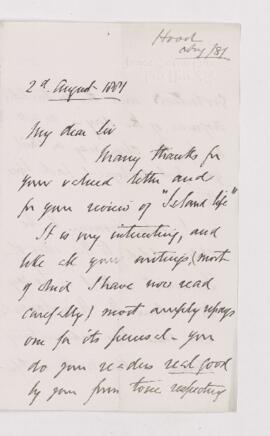 Hood
Aug /81
2d. August 1881
My dear Sir
Many thanks for
your valued letter and
for your review of "Island life"
It is very interesting, and
like all your writings, (most
of which I have now read
carefully) most amply repays
one for its perusal - you
do your readers real good
by your firm tone respecting